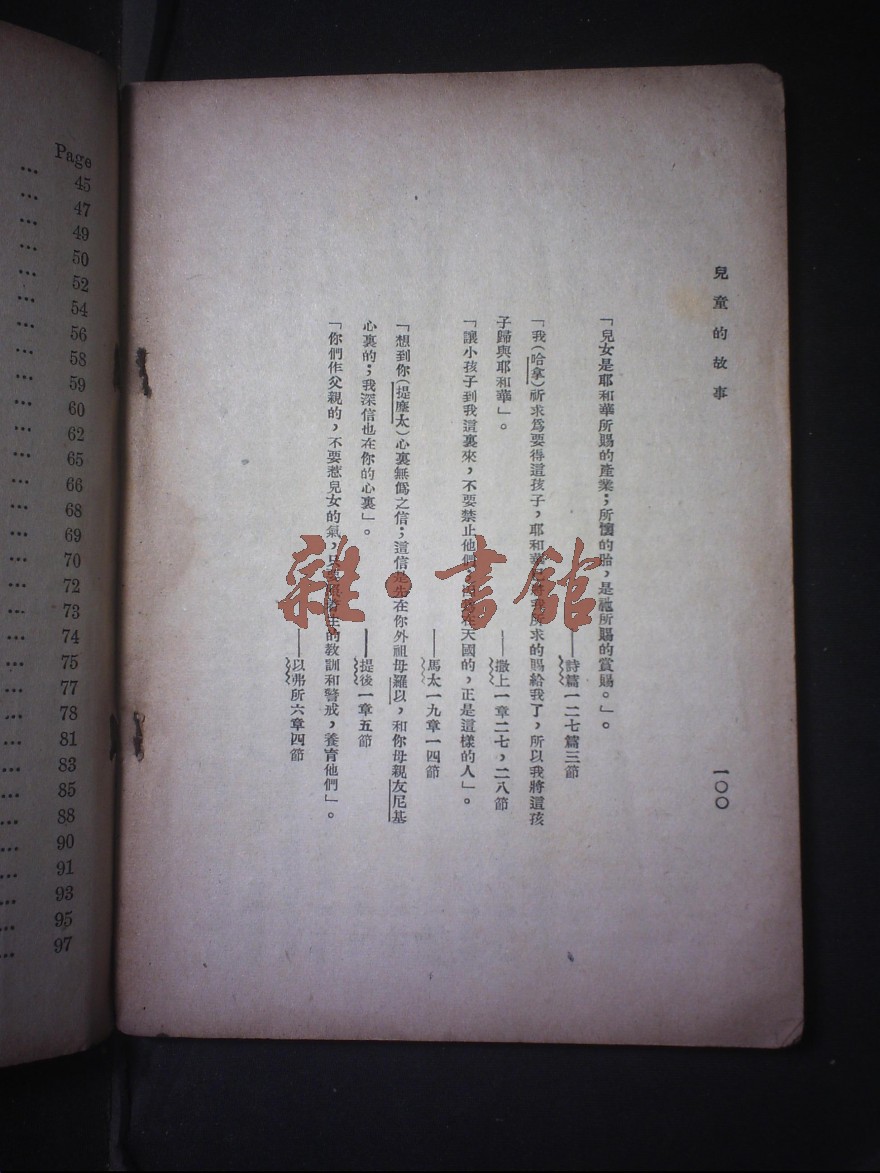 Page
... 45
... 47
... 49
... 50
... 52
... 54
... 56
... 58
... 59
... 60
... 62
... 65
... 66
... 68
... 69
... 70
... 72
... 73
... 74
... 75
... 77
... 78
... 81
... 83
... 85
... 88
... 90
... 91
... 93
... 95
... 97
兒童的故事
一〇〇
「兒女是耶和華所賜的產業；所懷的胎，是祂所賜的賞賜。」。
——詩篇一二七篇三節
「我（哈拿）祈求爲要得這孩子，耶和華已將我所求的賜給我了，所以我將這孩
子歸與耶和華」。
——撒上一章二七，二八節
「讓小孩子到我這裏來，不要禁止他們，因爲在天國的，正是這樣的人」。
——馬太一九章一四節
「想到你（提摩太）心裏無僞之信；這信是先在你外祖母羅以，和你母親友尼基
心裏的；我深信也在你的心裏」。
——提後一章五節
「你們作父親的，不要惹兒女的氣，只要照著主的教訓和警戒，養育他們」。
——以弗所六章四節
雜·書館